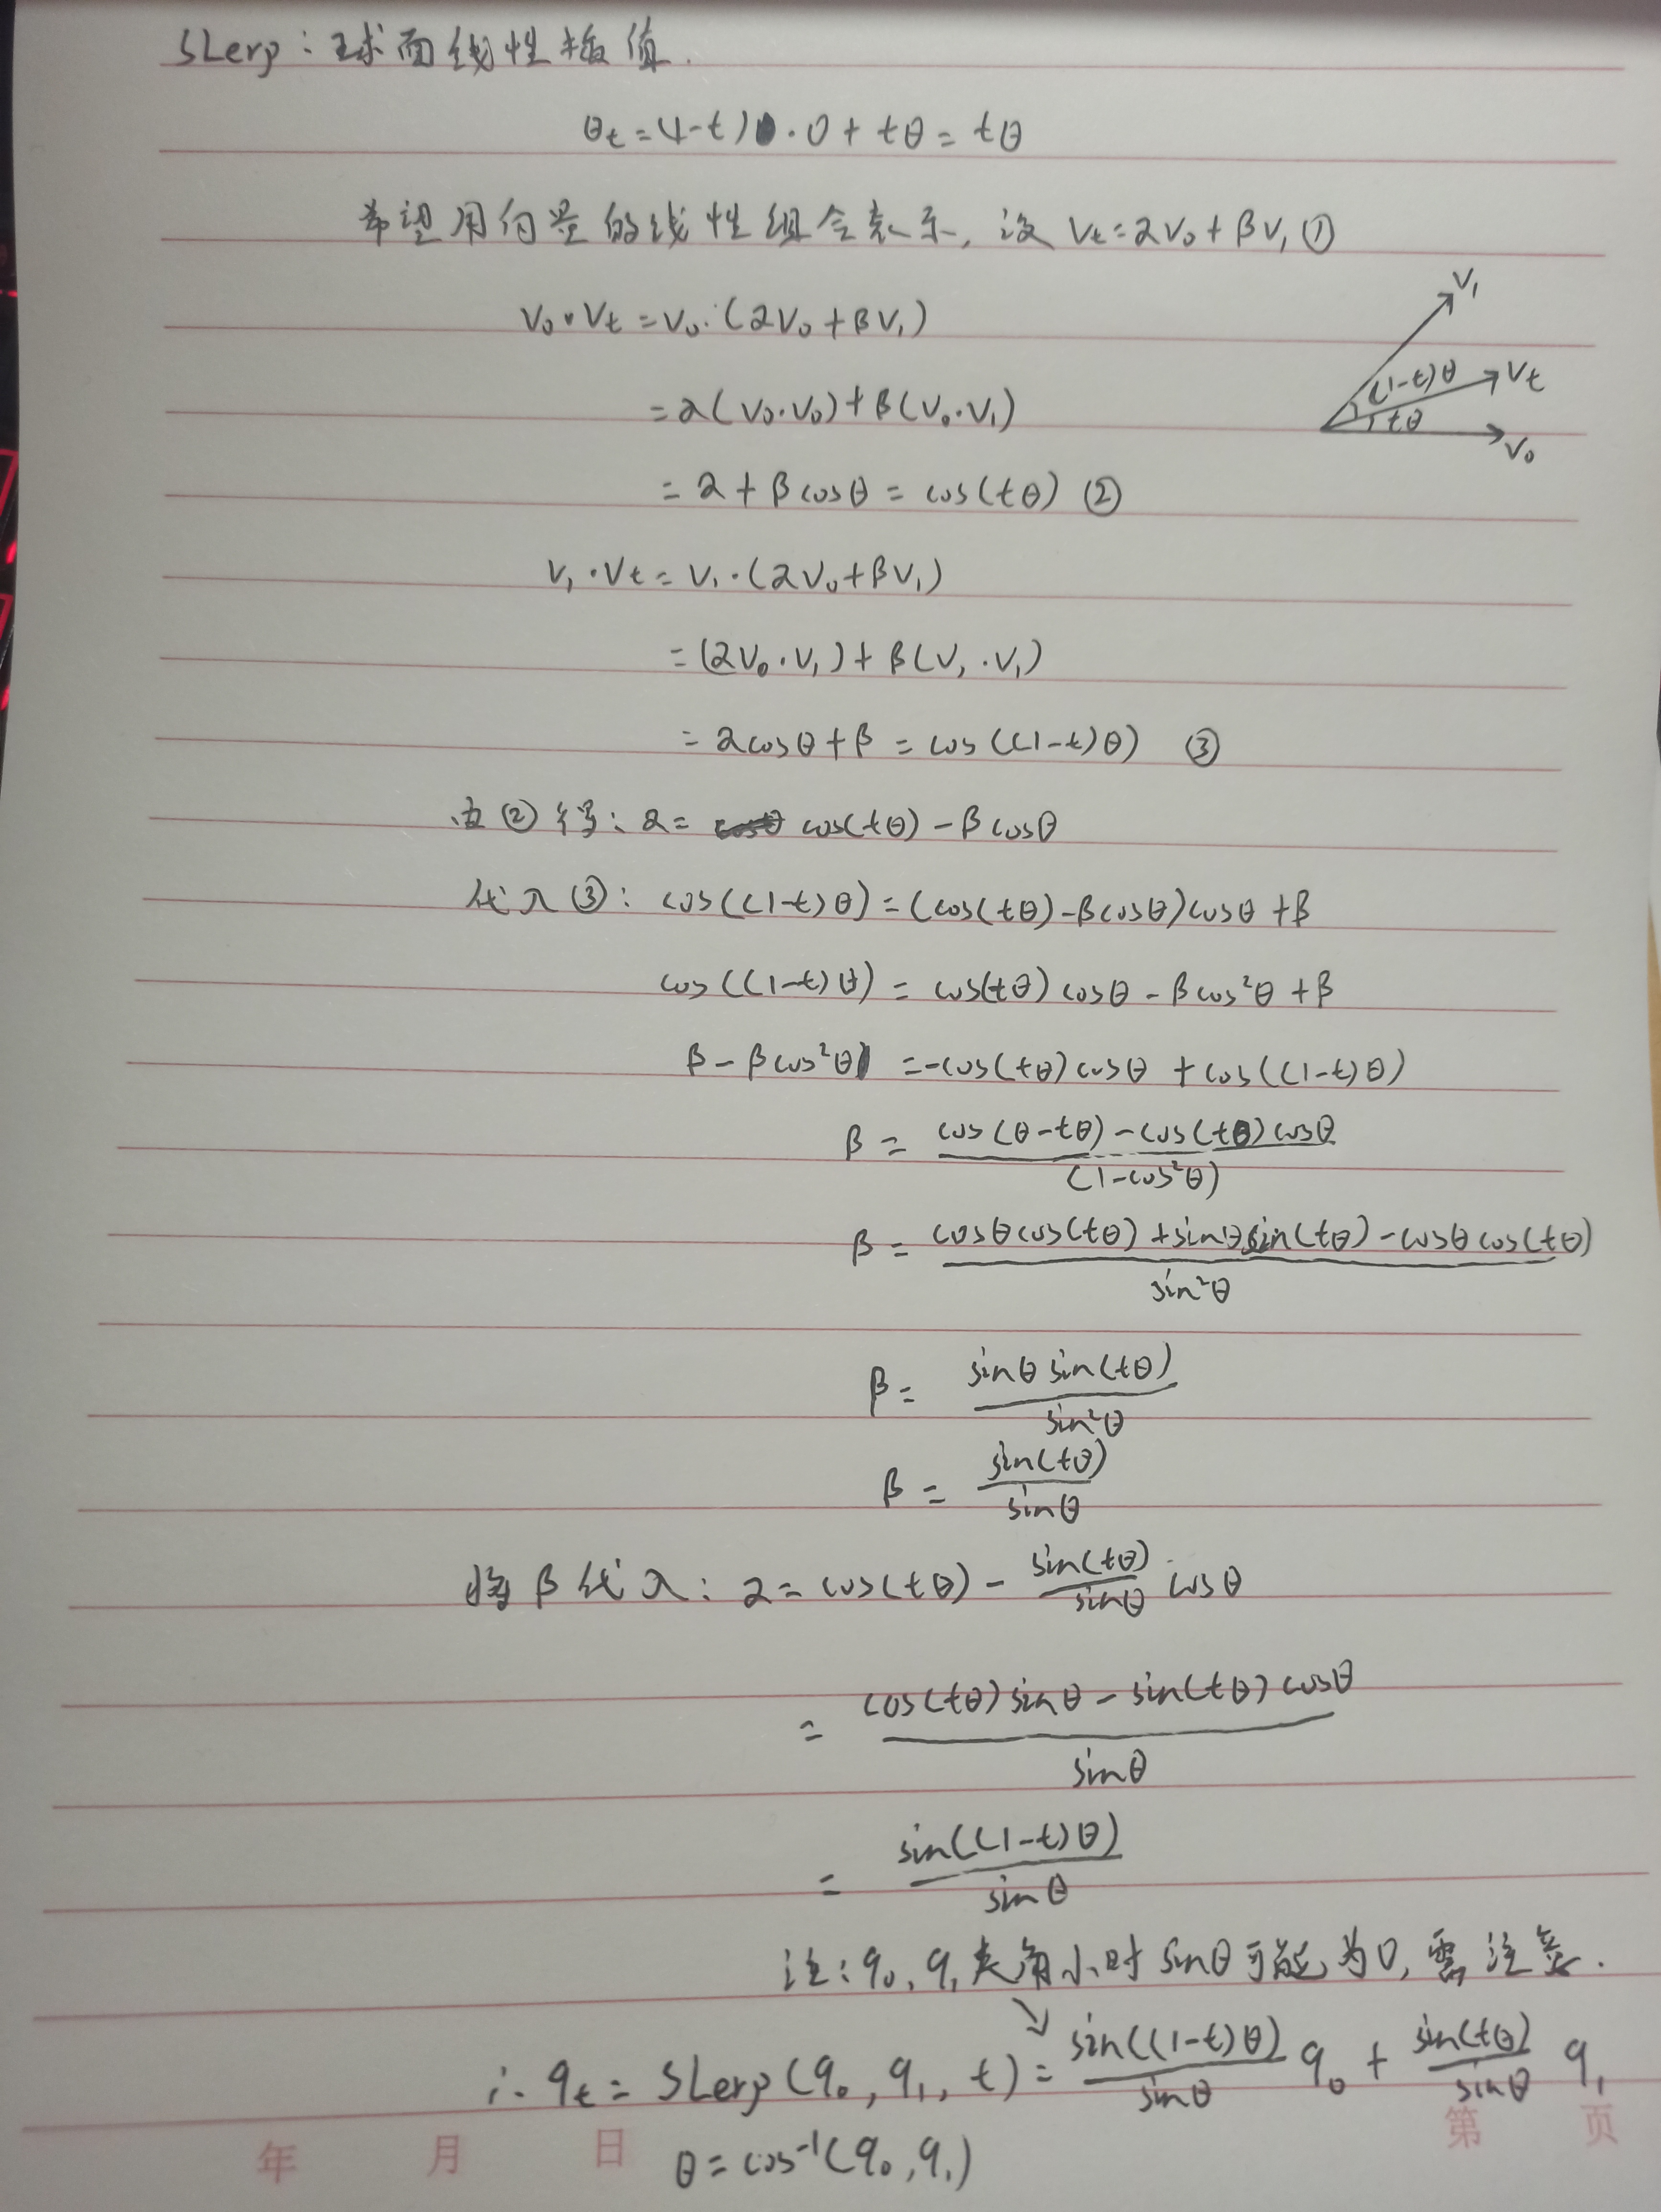 SLerp：球面线性插值.
θt = (1-t)·0 + tθ = tθ
希望用向量的线性组合表示, 设 Vt = αV0 + βV1 ①
V0·Vt = V0·(αV0 + βV1)
V1
= α(V0·V0) + β(V0·V1)
(1-t)θ Vt
tθ
V0
= α + βcosθ = cos(tθ) ②
V1·Vt = V1·(αV0 + βV1)
= (αV0·V1) + β(V1·V1)
= αcosθ + β = cos((1-t)θ) ③
由②得: α = cos(tθ) - βcosθ
代入③: cos((1-t)θ) = (cos(tθ) - βcosθ)cosθ + β
cos((1-t)θ) = cos(tθ)cosθ - βcos²θ + β
β - βcos²θ = -cos(tθ)cosθ + cos((1-t)θ)
β = cos(θ-tθ) - cos(tθ)cosθ / (1-cos²θ)
β = cosθcos(tθ) + sinθsin(tθ) - cosθcos(tθ) / sin²θ
β = sinθsin(tθ) / sin²θ
β = sin(tθ) / sinθ
将β代入: α = cos(tθ) - sin(tθ)/sinθ cosθ
= cos(tθ)sinθ - sin(tθ)cosθ / sinθ
= sin((1-t)θ) / sinθ
注: q0, q1夹角小时 sinθ可能为0, 需注意.
∴ qt = SLerp(q0, q1, t) = sin((1-t)θ)/sinθ q0 + sin(tθ)/sinθ q1
年 月 日 第 页
θ = cos⁻¹(q0, q1)